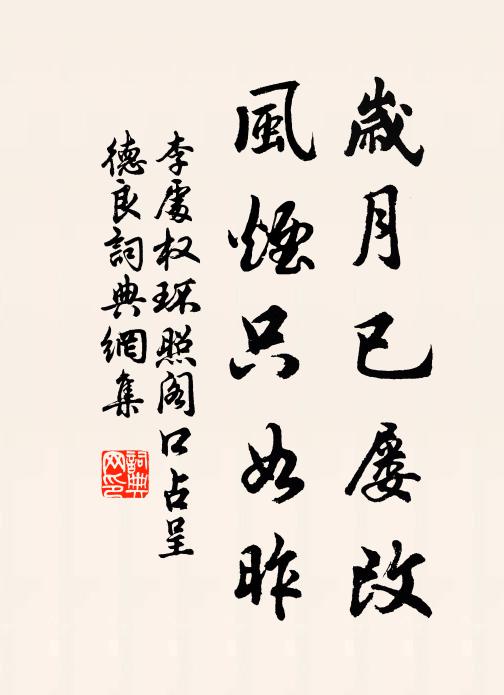 歲月已屡改
風煙只如昨
李處权环照阁口占呈
德良詞典網集
詞典網印